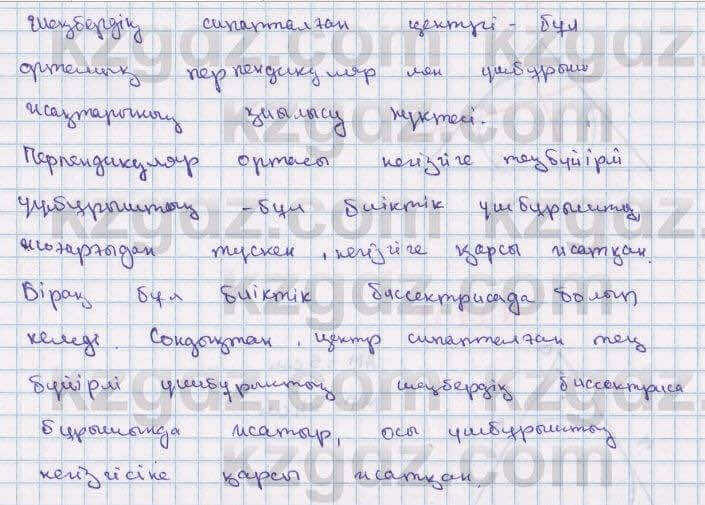 шеңбердің сипатталған центрі - бұл
орталық перпендикуляр мен үшбұрыш
жақтарының қиылысу нүктесі.
Перпендикуляр ортасы негізгіге теңбүйірлі
үшбұрыштың - бұл биіктік үшбұрыштың
жоғарғыдан түскен, негізгіге қарсы жатқан.
Бірақ бұл биіктік биссектрисада болып
келеді. Сондықтан, центр сипатталған тең
бүйірлі үшбұрыштың шеңбердің биссектриса
бұрышында жатыр, осы үшбұрыштың
негізгісіне қарсы жатқан.
kzgdz.com